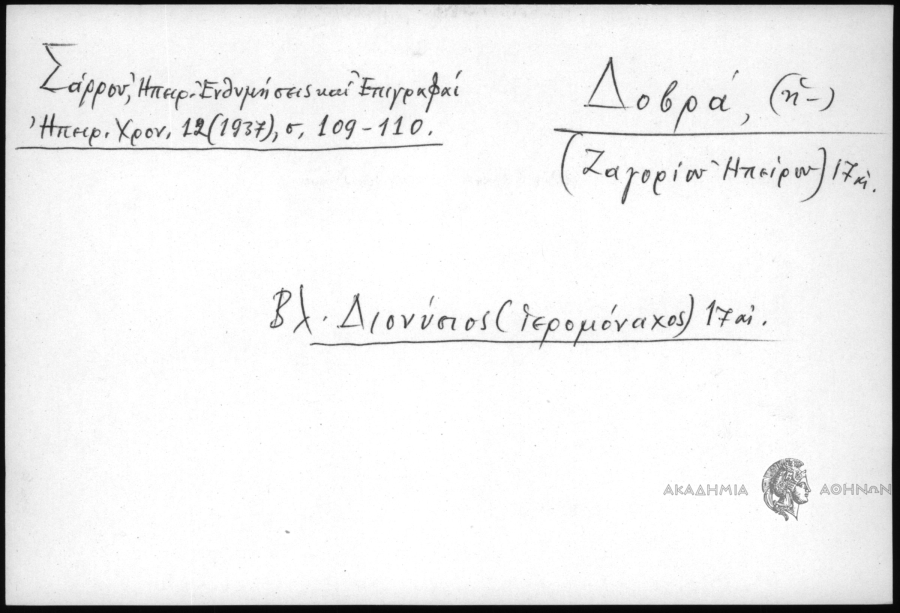 Σάρρου, Ἠπειρ. Ἐνθυμήσεις καὶ Ἐπιγραφαί
Ἠπειρ. Χρον. 12 (1937), σ. 109-110.
Δοβρά, (ἡ-)
(Ζαγορίου Ἠπείρου) 17 αἰ.
Βλ. Διονύσιος (ἱερομόναχος) 17 αἰ.
ΑΚΑΔΗΜΙΑ ΑΘΗΝΩΝ